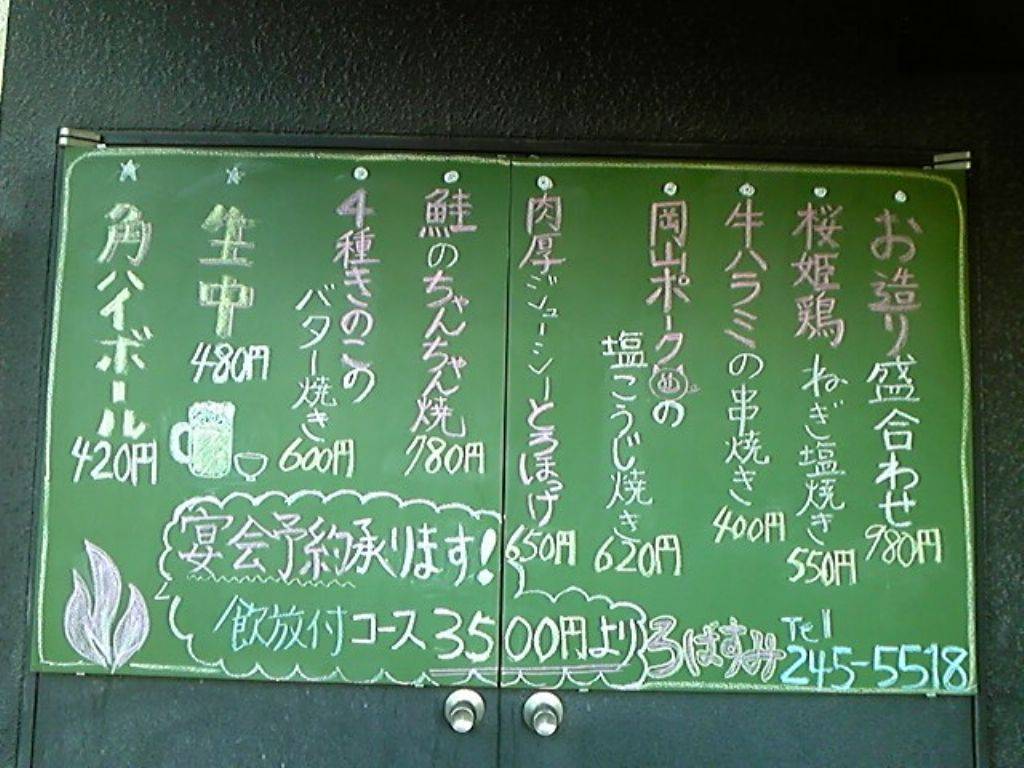 お造り盛合わせ
980円
桜姫鶏ねぎ塩焼き
550円
牛ハラミの串焼き
400円
岡山ポークの
塩こうじ焼き
620円
肉厚ジューシーとろほっけ
650円
鮭のちゃんちゃん焼
780円
4種きのこの
バター焼き
600円
生中
480円
角ハイボール
420円
宴会予約承ります!
飲放付コース3500円より
ろばすみ
Tel
245-5518